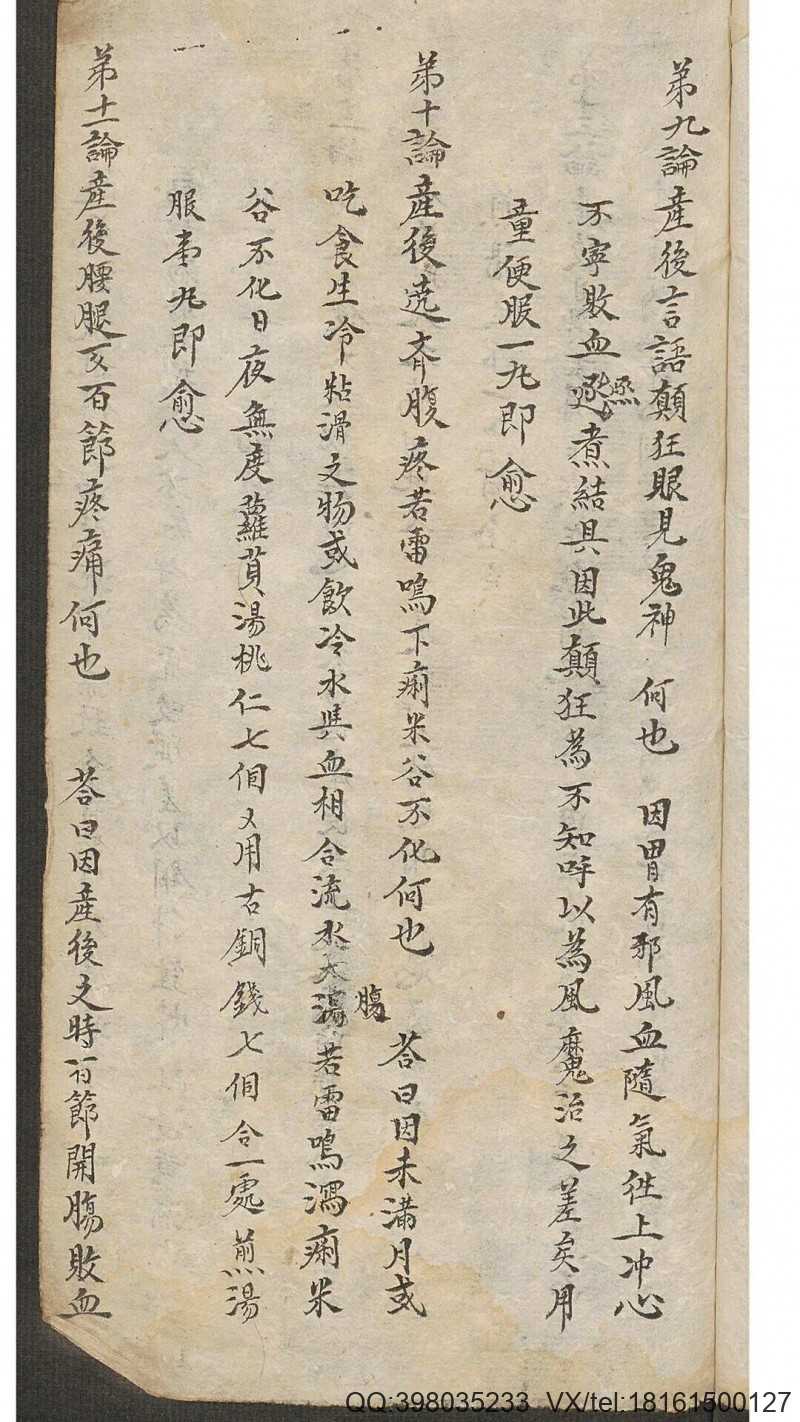 第九論產後言語顛狂眼見鬼神 何也 因胃有邪風血隨氣徃上冲心
不寕敗血逐㷫煮結具因此顛狂為不知呼以為風魔治之差矣用
童便服一九即愈
第十論產後遶齐腹疼若雷鳴下痢米谷不化何也 荅曰因未滿月或
吃食生冷粘滑之物或飲冷水與血相合流水大瀉腸若雷鳴瀉痢米
谷不化日夜無度蘿蔔湯桃仁七個又用古銅錢七個合一處煎湯
服丸即愈
第十一論產後腰腿又百節疼痛何也 荅曰因產後之時百節開腸敗血
QQ:398035233 VX/tel:18161500127